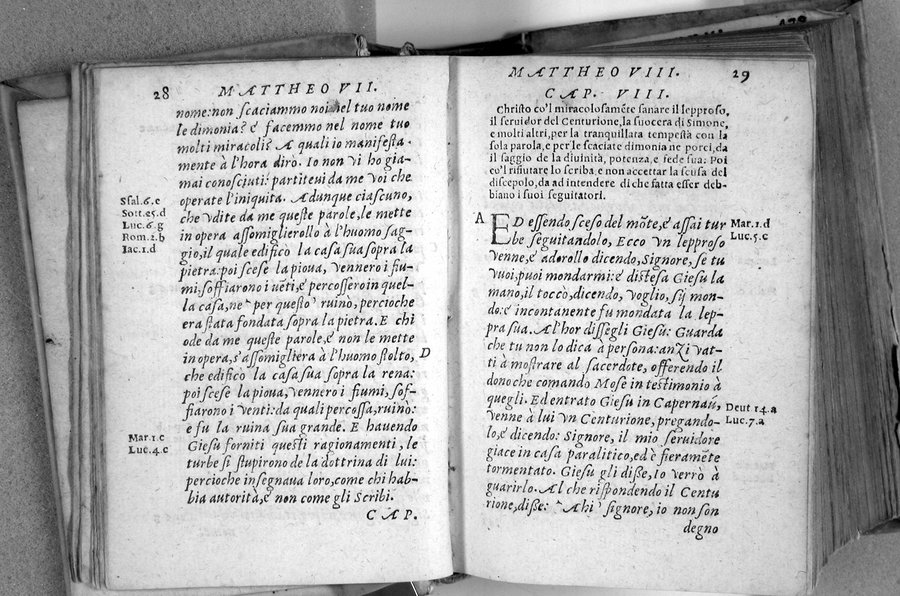 28 MATTHEO VII.
nome: non scaciammo noi nel tuo nome
le dimonia? é facemmo nel nome tuo
molti miracoli? A quali io manifesta-
mente à l'hora dirò. Io non vi ho gia-
mai conosciuti: partiteui da me voi che
operate l'iniquita. Adunque ciascuno,
che vdite da me queste parole, le mette
in opera assomiglierollo à l'huomo sag-
gio, il quale edificò la casa sua sopra la
pietra: poi scese la pioua, vennero i fiu-
mi, soffiarono i uēti, é percossero in quel-
la casa, ne per questo ruinò, percioche
era stata fondata sopra la pietra. E chi
ode da me queste parole, é non le mette
in opera, s'assomigliera à l'huomo stolto,
che edificò la casa sua sopra la rena:
poi scese la pioua, vennero i fiumi, sof-
fiarono i venti: da quali percossa, ruinò:
e fu la ruina sua grande. E hauendo
Giesu forniti questi ragionamenti, le
turbe si stupirono de la dottrina di lui:
percioche insegnaua loro, come chi hab-
bia autorità, e non come gli Scribi.
CAP.
Ssal.6.e
Sott.25.d
Luc.6.g
Rom.2.b
Iac.1.d
D
Mar.1.c
Luc.4.c
MATTHEO VIII. 29
CAP. VIII.
Christo co'l miracolosamēte sanare il lepproso,
il seruidor del Centurione, la suocera di Simone,
e molti altri, per la tranquillata tempesta con la
sola parola, e per le scaciate dimonia ne porci, da
il saggio de la diuinità, potenza, e fede sua: Poi
co'l rifiutare lo scriba, e non accettar la scusa del
discepolo, da ad intendere di che fatta esser deb-
biano i suoi seguitatori.
A
ED essendo, sceso del mōte, é assai tur
be seguitandolo, Ecco vn lepproso
venne, é adorollo dicendo, Signore, se tu
vuoi, puoi mondarmi: é distesa Giesu la
mano, il toccò, dicendo, Voglio, sij mon-
do: é incontanente fu mondata la lep-
pra sua. Al'hor dissegli Giesu: Guarda
che tu non lo dica à persona: anzi vat-
ti à mostrare al sacerdote, offerendo il
dono che comando Mose in testimonio à
quegli. Ed entrato Giesu in Capernaū,
venne à lui vn Centurione, pregando-
lo, é dicendo: Signore, il mio seruidore
giace in casa paralitico, ed è fieramēte
tormentato. Giesu gli disse, Io verrò à
guarirlo. Al che rispondendo il Centu
rione, disse: Ahi signore, io non son
degno
Mar.1.d
Luc.5.c
Deut.14.a
Luc.7.a